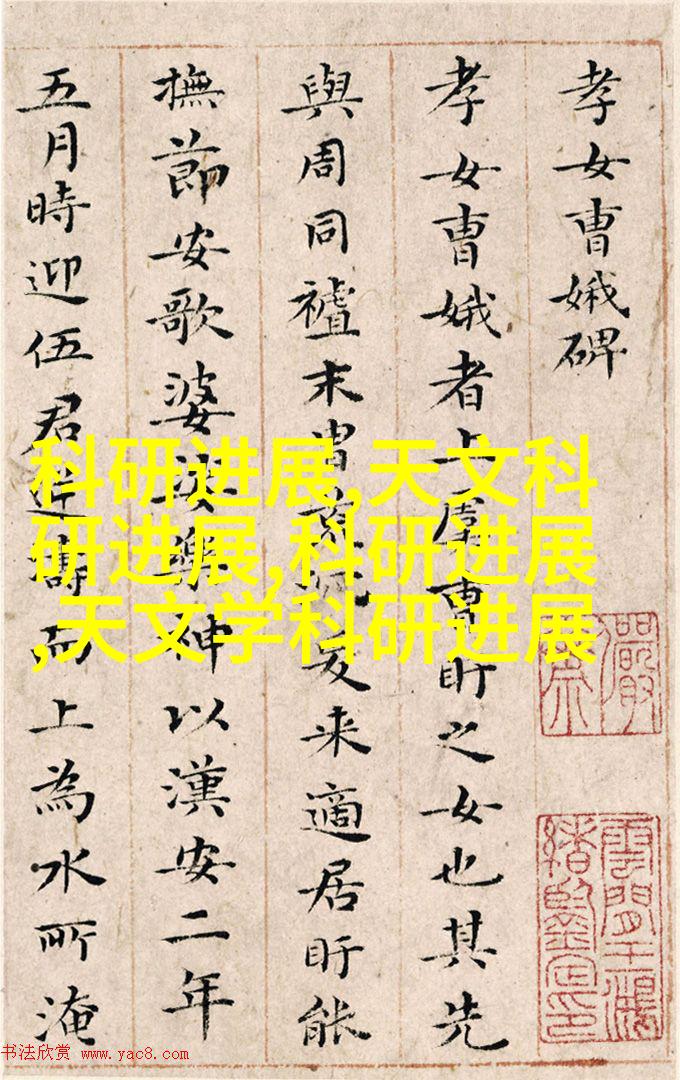 孝女曹娥碑
孝女曹娥者上虞曹盱之女也其先
與周同禮末胄荒沉爰来適居盱能
撫節安歌婆娑樂神以漢安二年
五月時迎伍君逆濤而上為水所淹
科研进展,天文科
研进展,科研进展
,天文学科研进展
书法欣赏 www.yac8.com